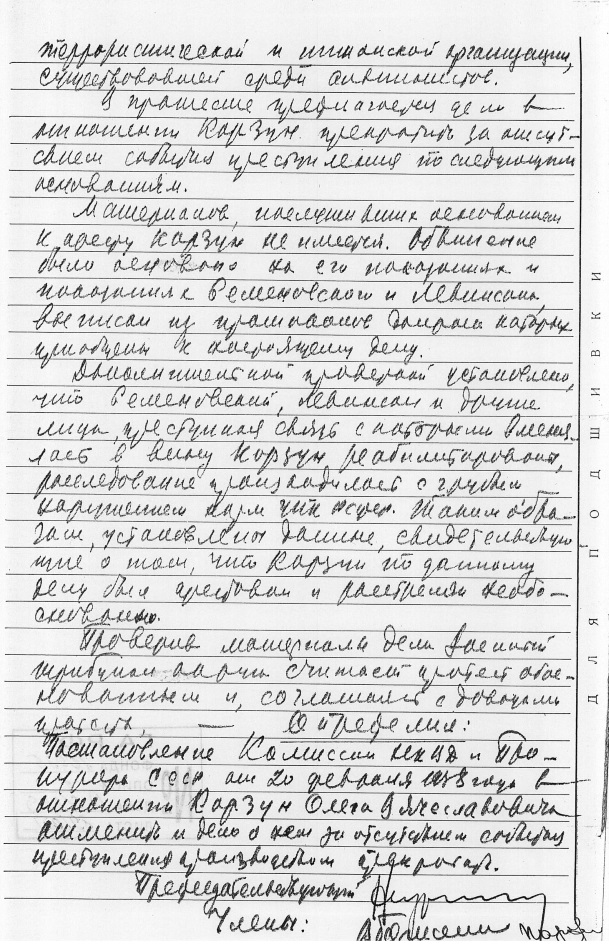 террористической и шпионской организации,
существовавшей среди альпинистов.
В протесте предлагается дело в
отношении Корзун прекратить за отсут-
ствием события преступления по следующим
основаниям.
Материалов, послуживших основанием
к аресту Корзун не имеется. Обвинение
было основано на его показаниях и
показаниях Семеновского и Левинсона,
выписки из протоколов допроса которых
приобщены к настоящему делу.
Дополнительной проверкой установлено,
что Семеновский, Левинсон и другие
лица, преступная связь с которыми вменя-
лась в вину Корзун реабилитированы,
расследование производилось с грубым
нарушением норм УПК РСФСР. Таким обра-
зом, установлены данные, свидетельствую
щие о том, что Корзун по данному
делу был арестован и расстрелян необо-
снованно.
Проверив материалы дела Военный
трибунал округа считает протест обос-
нованным и, соглашаясь с доводами
протеста, — Определил:
Постановление Комиссии НКВД и Про-
курора СССР от 20 февраля 1938 года в
отношении Корзун Олега Вячеславовича
отменить и дело о нем за отсутствием события
преступления производством прекратить.
Председательствующий
Члены:
ДЛЯ ПОДШИВКИ